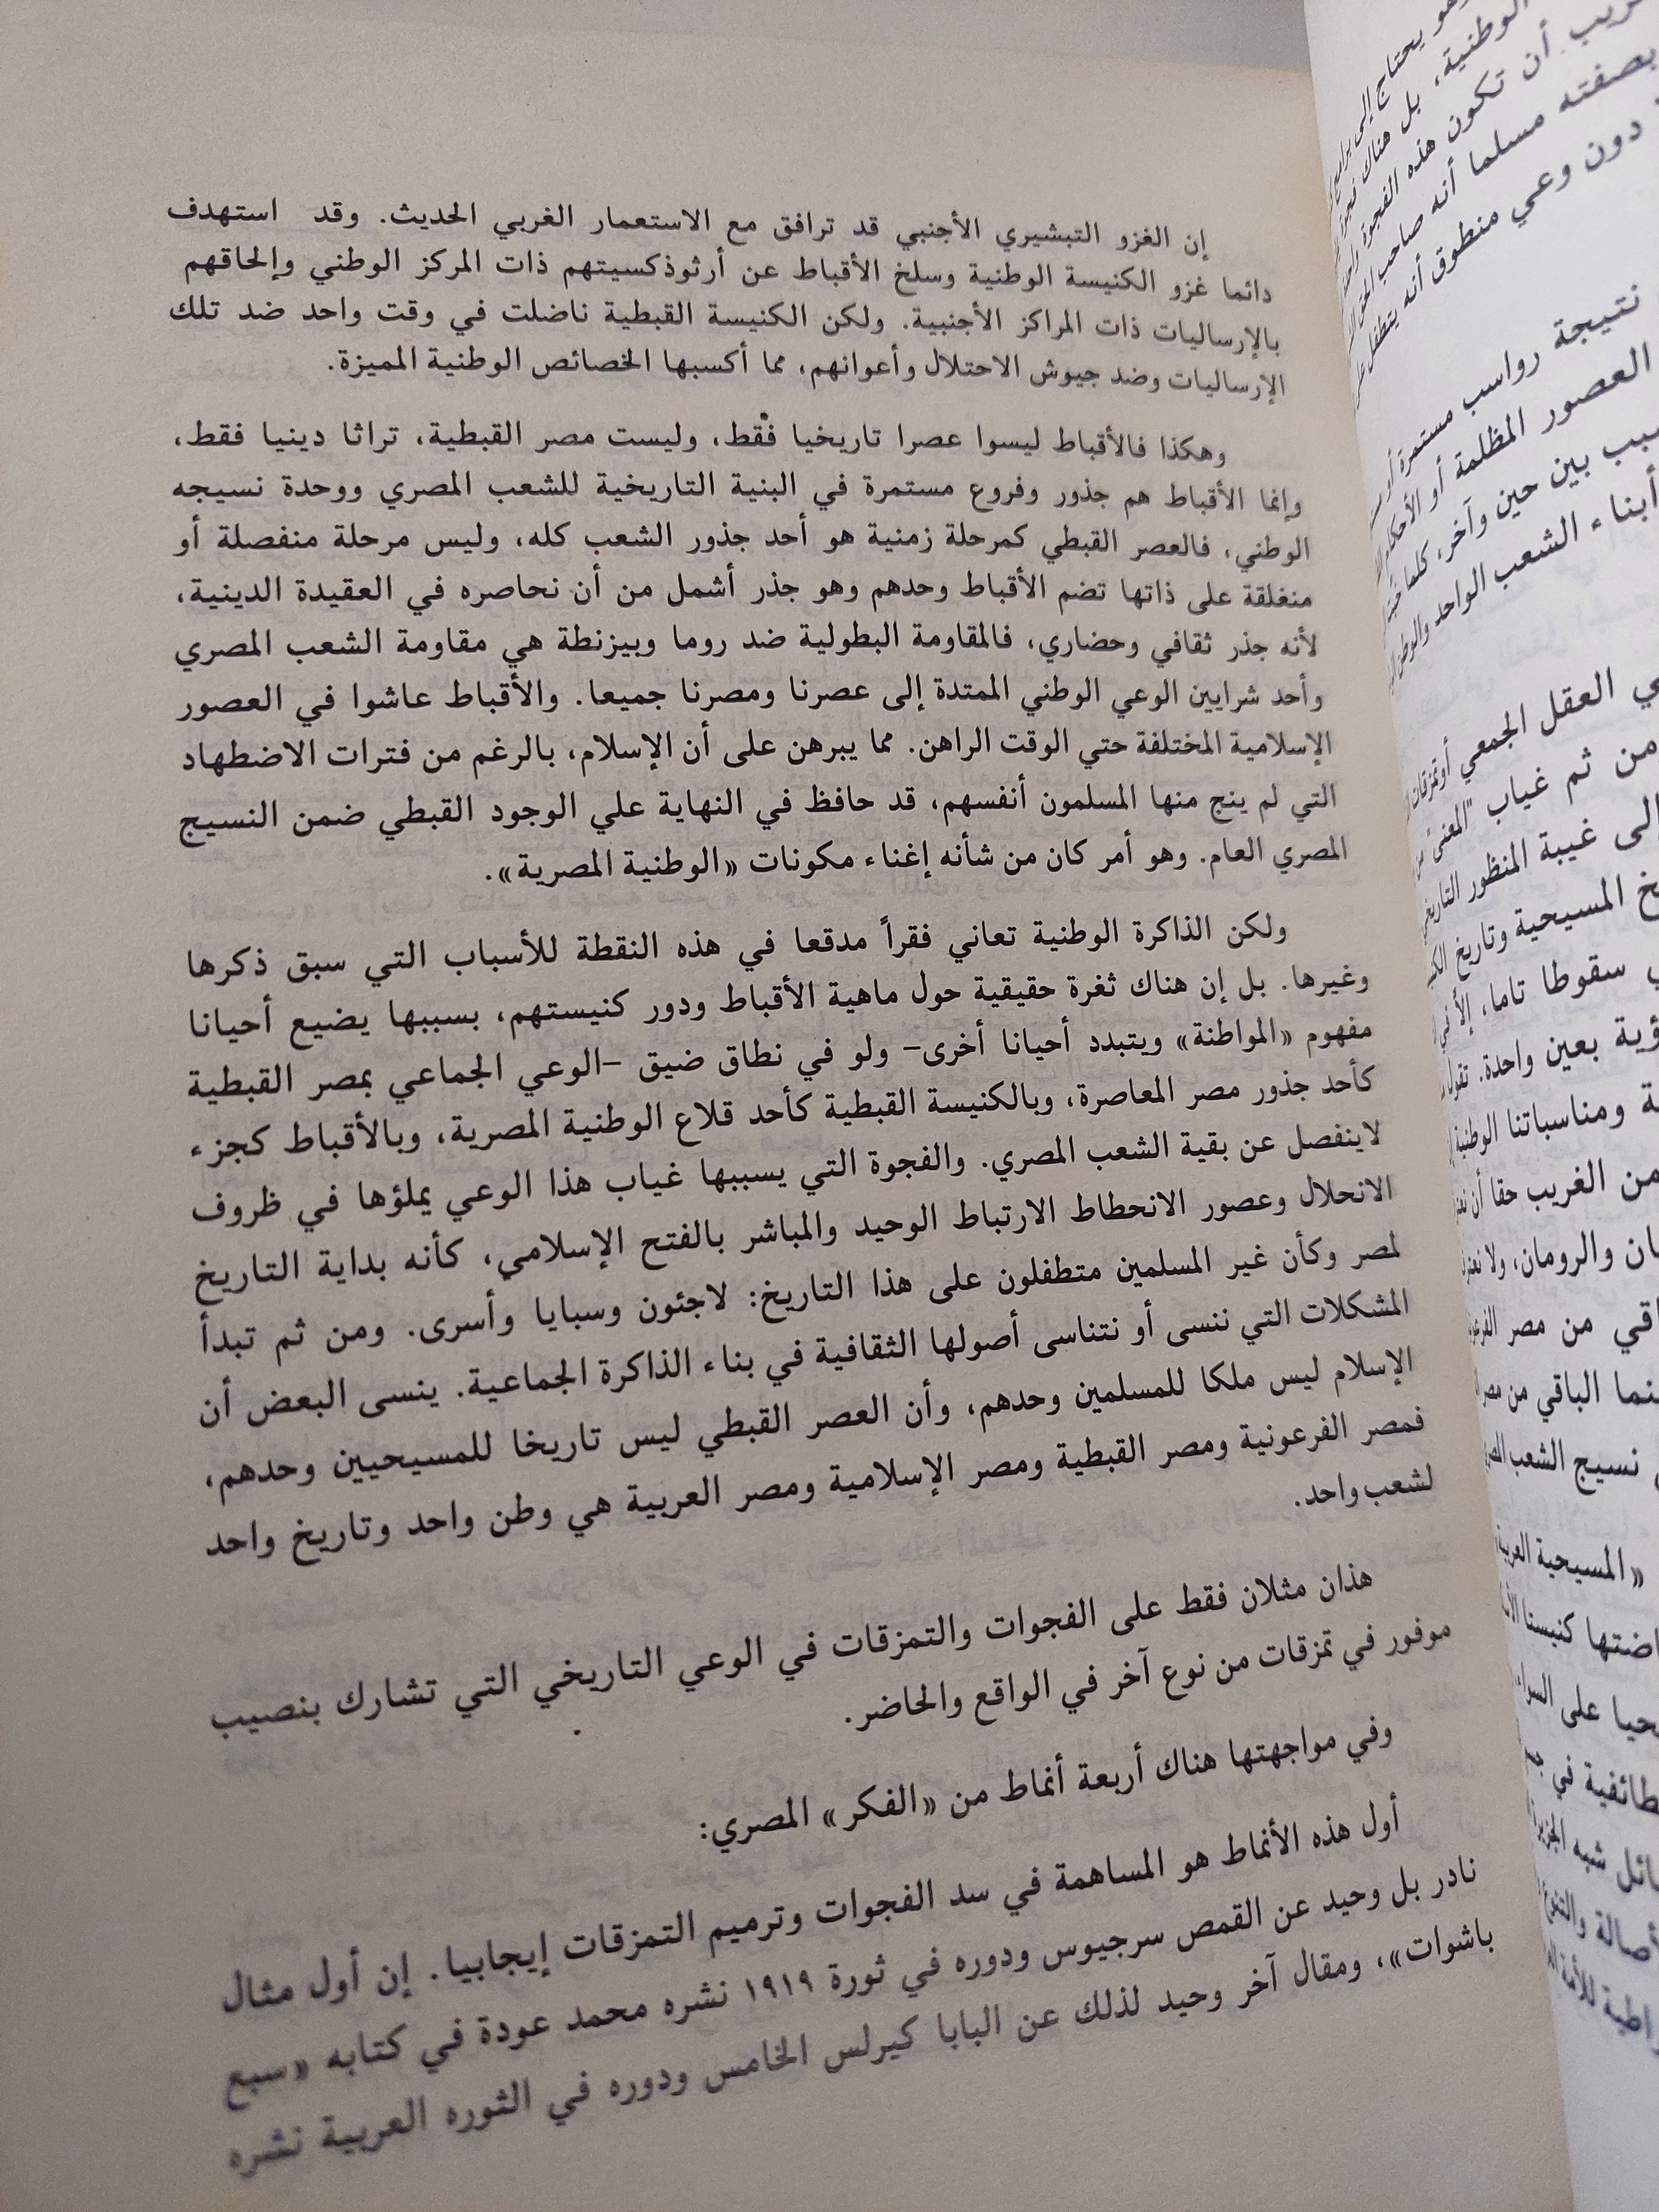 إن الغزو التبشيري الأجنبي قد ترافق مع الاستعمار الغربي الحديث. وقد استهدف
دائما غزو الكنيسة الوطنية وسلخ الأقباط عن أرثوذكسيتهم ذات المركز الوطني وإلحاقهم
بالإرساليات ذات المراكز الأجنبية. ولكن الكنيسة القبطية ناضلت في وقت واحد ضد تلك
الإرساليات وضد جيوش الاحتلال وأعوانهم، مما أكسبها الخصائص الوطنية المميزة.
وهكذا فالأقباط ليسوا عصرا تاريخيا فقط، وليست مصر القبطية، تراثا دينيا فقط،
وإنما الأقباط هم جذور وفروع مستمرة في البنية التاريخية للشعب المصري ووحدة نسيجه
الوطني، فالعصر القبطي كمرحلة زمنية هو أحد جذور الشعب كله، وليس مرحلة منفصلة أو
منغلقة على ذاتها تضم الأقباط وحدهم وهو جذر أشمل من أن نحاصره في العقيدة الدينية،
لأنه جذر ثقافي وحضاري، فالمقاومة البطولية ضد روما وبيزنطة هي مقاومة الشعب المصري
وأحد شرايين الوعي الوطني الممتدة إلى عصرنا ومصرنا جميعا. والأقباط عاشوا في العصور
الإسلامية المختلفة حتي الوقت الراهن. مما يبرهن على أن الإسلام، بالرغم من فترات الاضطهاد
التي لم ينج منها المسلمون أنفسهم، قد حافظ في النهاية علي الوجود القبطي ضمن النسيج
المصري العام. وهو أمر كان من شأنه إغناء مكونات «الوطنية المصرية».
ولكن الذاكرة الوطنية تعاني فقراً مدقعا في هذه النقطة للأسباب التي سبق ذكرها
وغيرها. بل إن هناك ثغرة حقيقية حول ماهية الأقباط ودور كنيستهم، بسببها يضيع أحيانا
مفهوم «المواطنة» ويتبدد أحيانا أخرى– ولو في نطاق ضيق –الوعي الجماعي بمصر القبطية
كأحد جذور مصر المعاصرة، وبالكنيسة القبطية كأحد قلاع الوطنية المصرية، وبالأقباط كجزء
لاينفصل عن بقية الشعب المصري. والفجوة التي يسببها غياب هذا الوعي يملؤها في ظروف
الانحلال وعصور الانحطاط الارتباط الوحيد والمباشر بالفتح الإسلامي، كأنه بداية التاريخ
لمصر وكأن غير المسلمين متطفلون على هذا التاريخ: لاجئون وسبايا وأسرى. ومن ثم تبدأ
المشكلات التي ننسى أو نتناسى أصولها الثقافية في بناء الذاكرة الجماعية. ينسى البعض أن
الإسلام ليس ملكا للمسلمين وحدهم، وأن العصر القبطي ليس تاريخا للمسيحيين وحدهم،
فمصر الفرعونية ومصر القبطية ومصر الإسلامية ومصر العربية هي وطن واحد وتاريخ واحد
لشعب واحد.
هذان مثلان فقط على الفجوات والتمزقات في الوعي التاريخي التي تشارك بنصيب
موفور في تمزقات من نوع آخر في الواقع والحاضر.
وفي مواجهتها هناك أربعة أنماط من «الفكر» المصري:
أول هذه الأنماط هو المساهمة في سد الفجوات وترميم التمزقات إيجابيا. إن أول مثال
نادر بل وحيد عن القمص سرجيوس ودوره في ثورة ١٩١٩ نشره محمد عودة في كتابه «سبع
باشوات»، ومقال آخر وحيد لذلك عن البابا كيرلس الخامس ودوره في الثوره العربية نشره
وهو يحتاج إلى
الوطنية، بل هناك
أن تكون هذه الفجوة
بصفته مسلما أنه صاحب
دون وعي منطوق أنه يتطفل
نتيجة رواسب مستمرة
العصور المظلمة أو
بين حين وآخر، كلما
أبناء الشعب الواحد والوطن
العقل الجمعي
من ثم غياب "المعنى"
إلى غيبة المنظور
المسيحية وتاريخ
سقوطا تاما، إلا
بعين واحدة. تقول
ومناسباتنا الوطنية
من الغريب حقا أن
والرومان، ولا
من مصر
الباقي من مصر
نسيج الشعب
«المسيحية العربية
كنيستنا
على السواء
في
شبه
والتنوع
للأمة